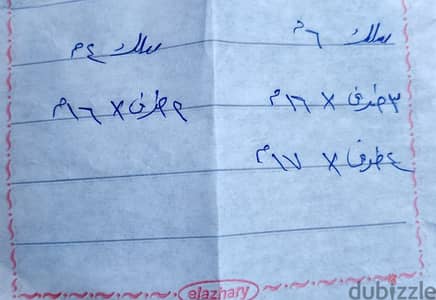 سلك ٦م
٣ طرف X ١٦م
٤ طرف X ١٧م
سلك ٤م
٢ طرف X ١٦م
elazhary
dubizzle